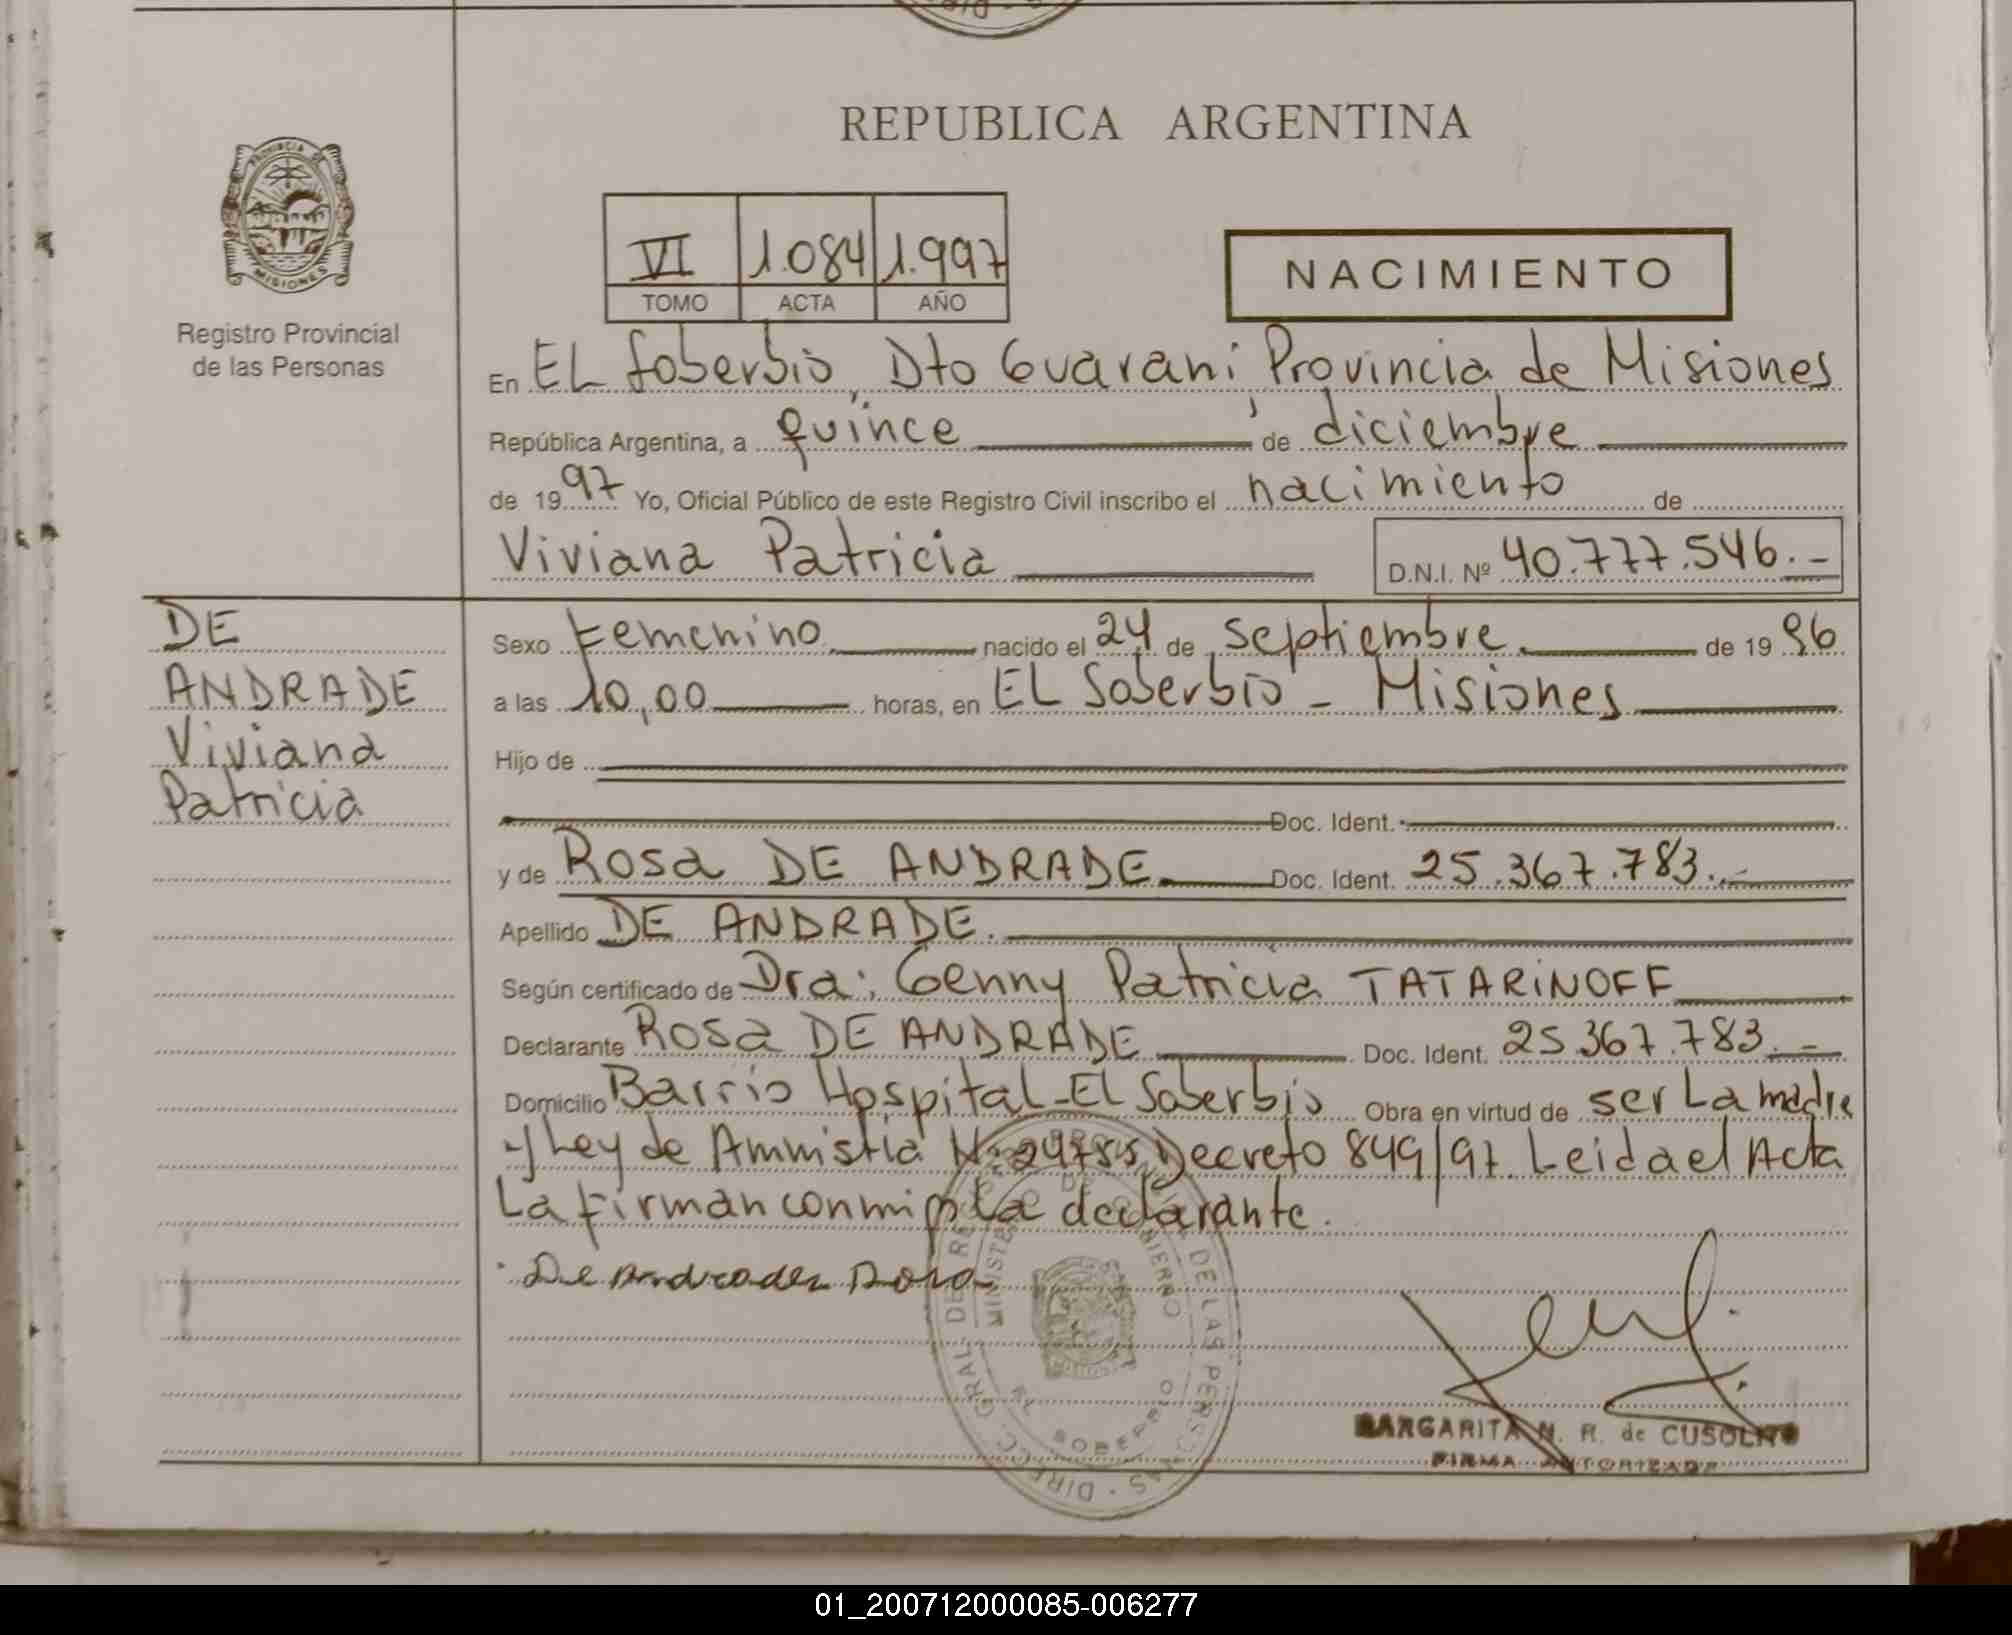 REPUBLICA ARGENTINA
PROVINCIA DE
MISIONES
Registro Provincial
de las Personas
VI 1.084 1.997
TOMO ACTA AÑO
NACIMIENTO
En EL Soberbio, Dto Guarani, Provincia de Misiones
República Argentina, a quince de diciembre
de 1997 Yo, Oficial Público de este Registro Civil inscribo el nacimiento de
Viviana Patricia D.N.I. Nº 40.777.546.-
DE
ANDRADE
Viviana
Patricia
Sexo Femenino nacido el 24 de septiembre de 1996
a las 10,00 horas, en EL Soberbio - Misiones
Hijo de
Doc. Ident.
y de Rosa DE ANDRADE Doc. Ident. 25.367.783.-
Apellido DE ANDRADE.
Según certificado de Dra: Genny Patricia TATARINOFF
Declarante Rosa DE ANDRADE Doc. Ident. 25.367.783.-
Domicilio Barrio Hospital-EL Soberbio Obra en virtud de ser La madre
y Ley de Ammistia Nº 24755 Decreto 849/97. Leida el Acta
La firman conmigo La declarante.
De Andrades Rosa
DIRECC. GRAL. DE REG. DE LAS PERSONAS
MINISTERIO DE GOBIERNO
SOBERBIO
MARGARITA N. R. de CUSOLITO
FIRMA AUTORIZADA
01_200712000085-006277